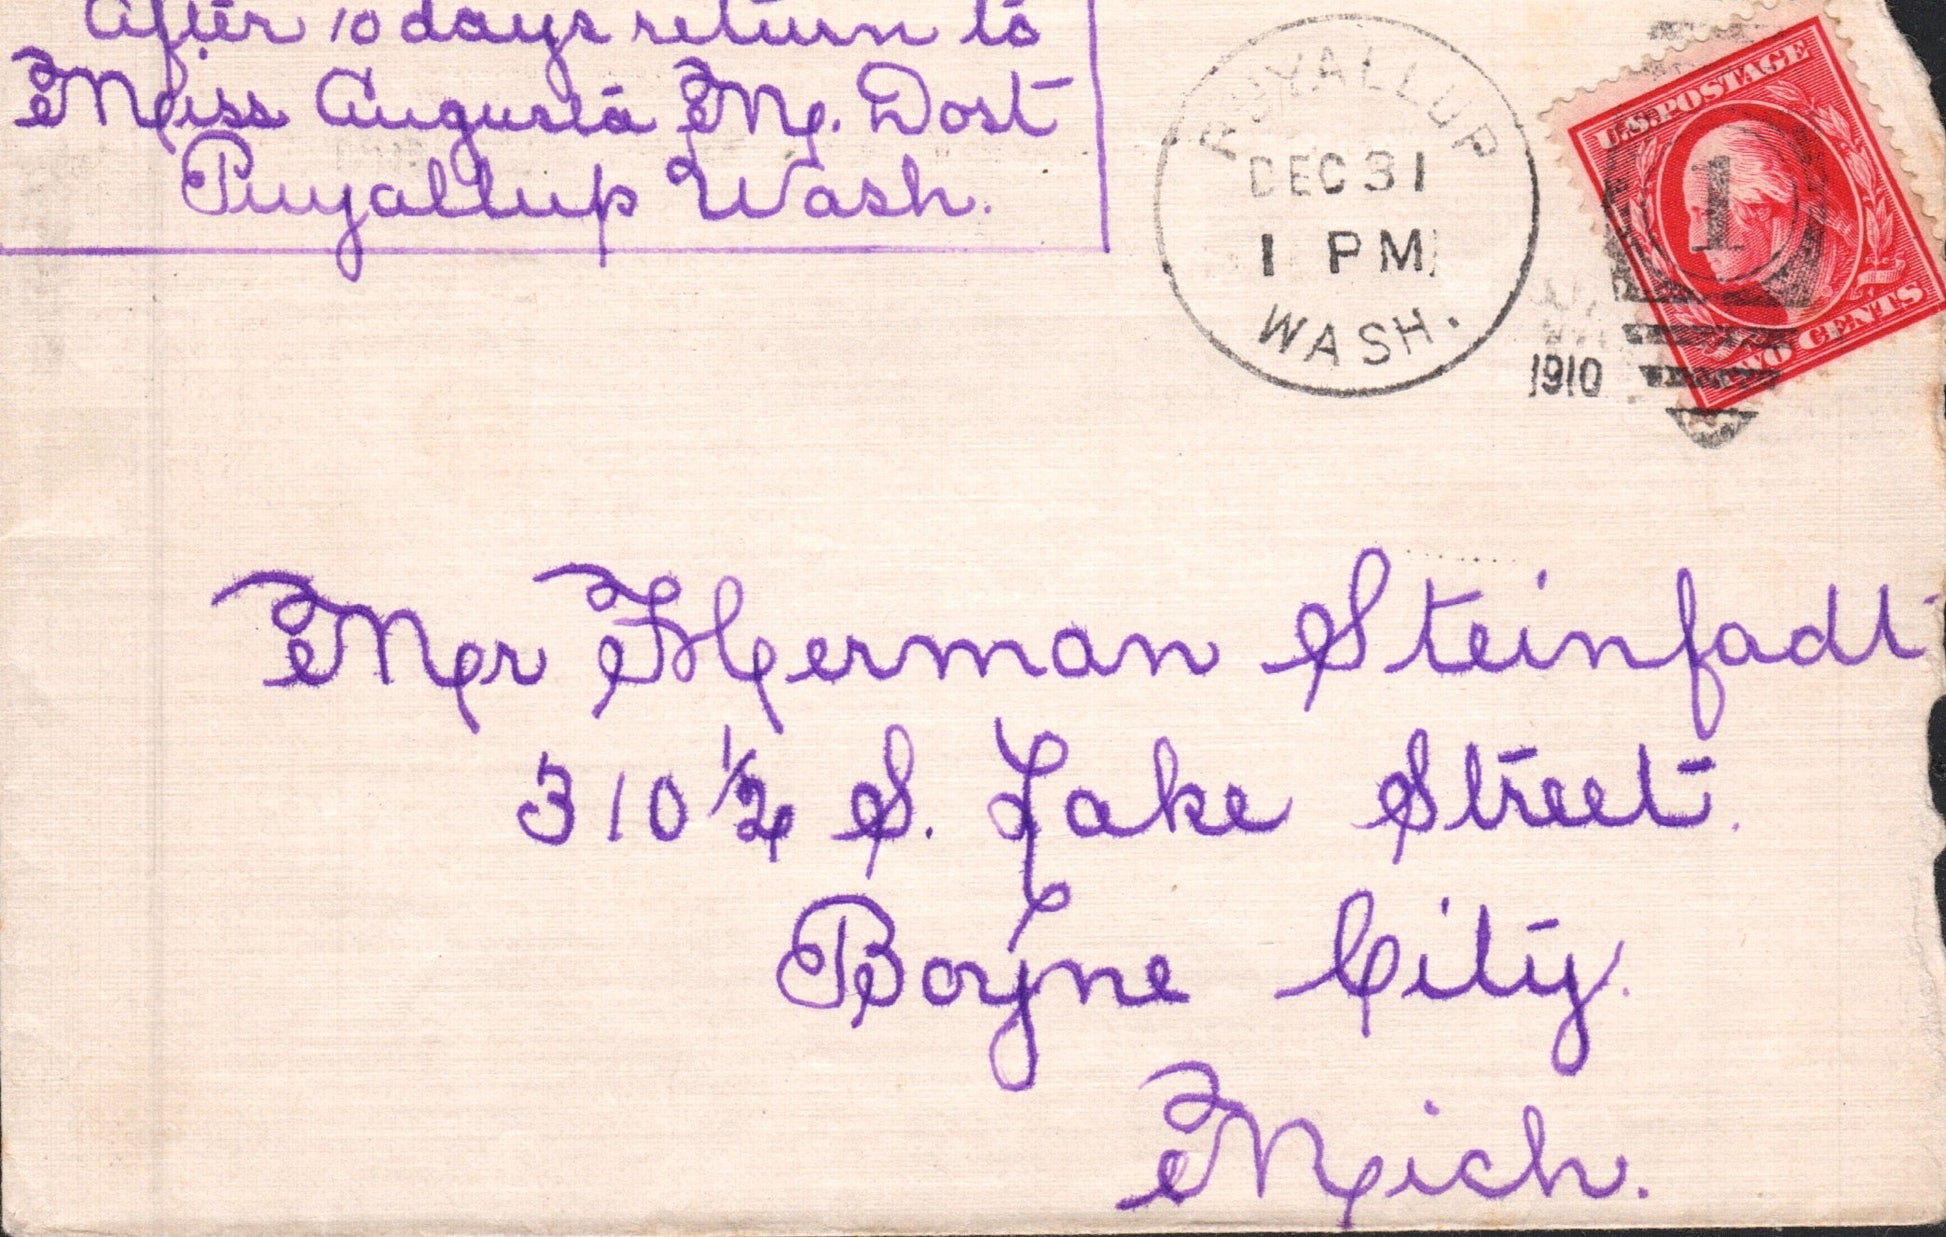 After 10 days return to
Miss Augusta M. Dost
Puyallup Wash.
PUYALLUP
DEC 31
1 PM
WASH.
1910
U.S. POSTAGE
1
TWO CENTS
Mr Herman Steinfadt
310 1/2 S. Lake Street.
Boyne City.
Mich.